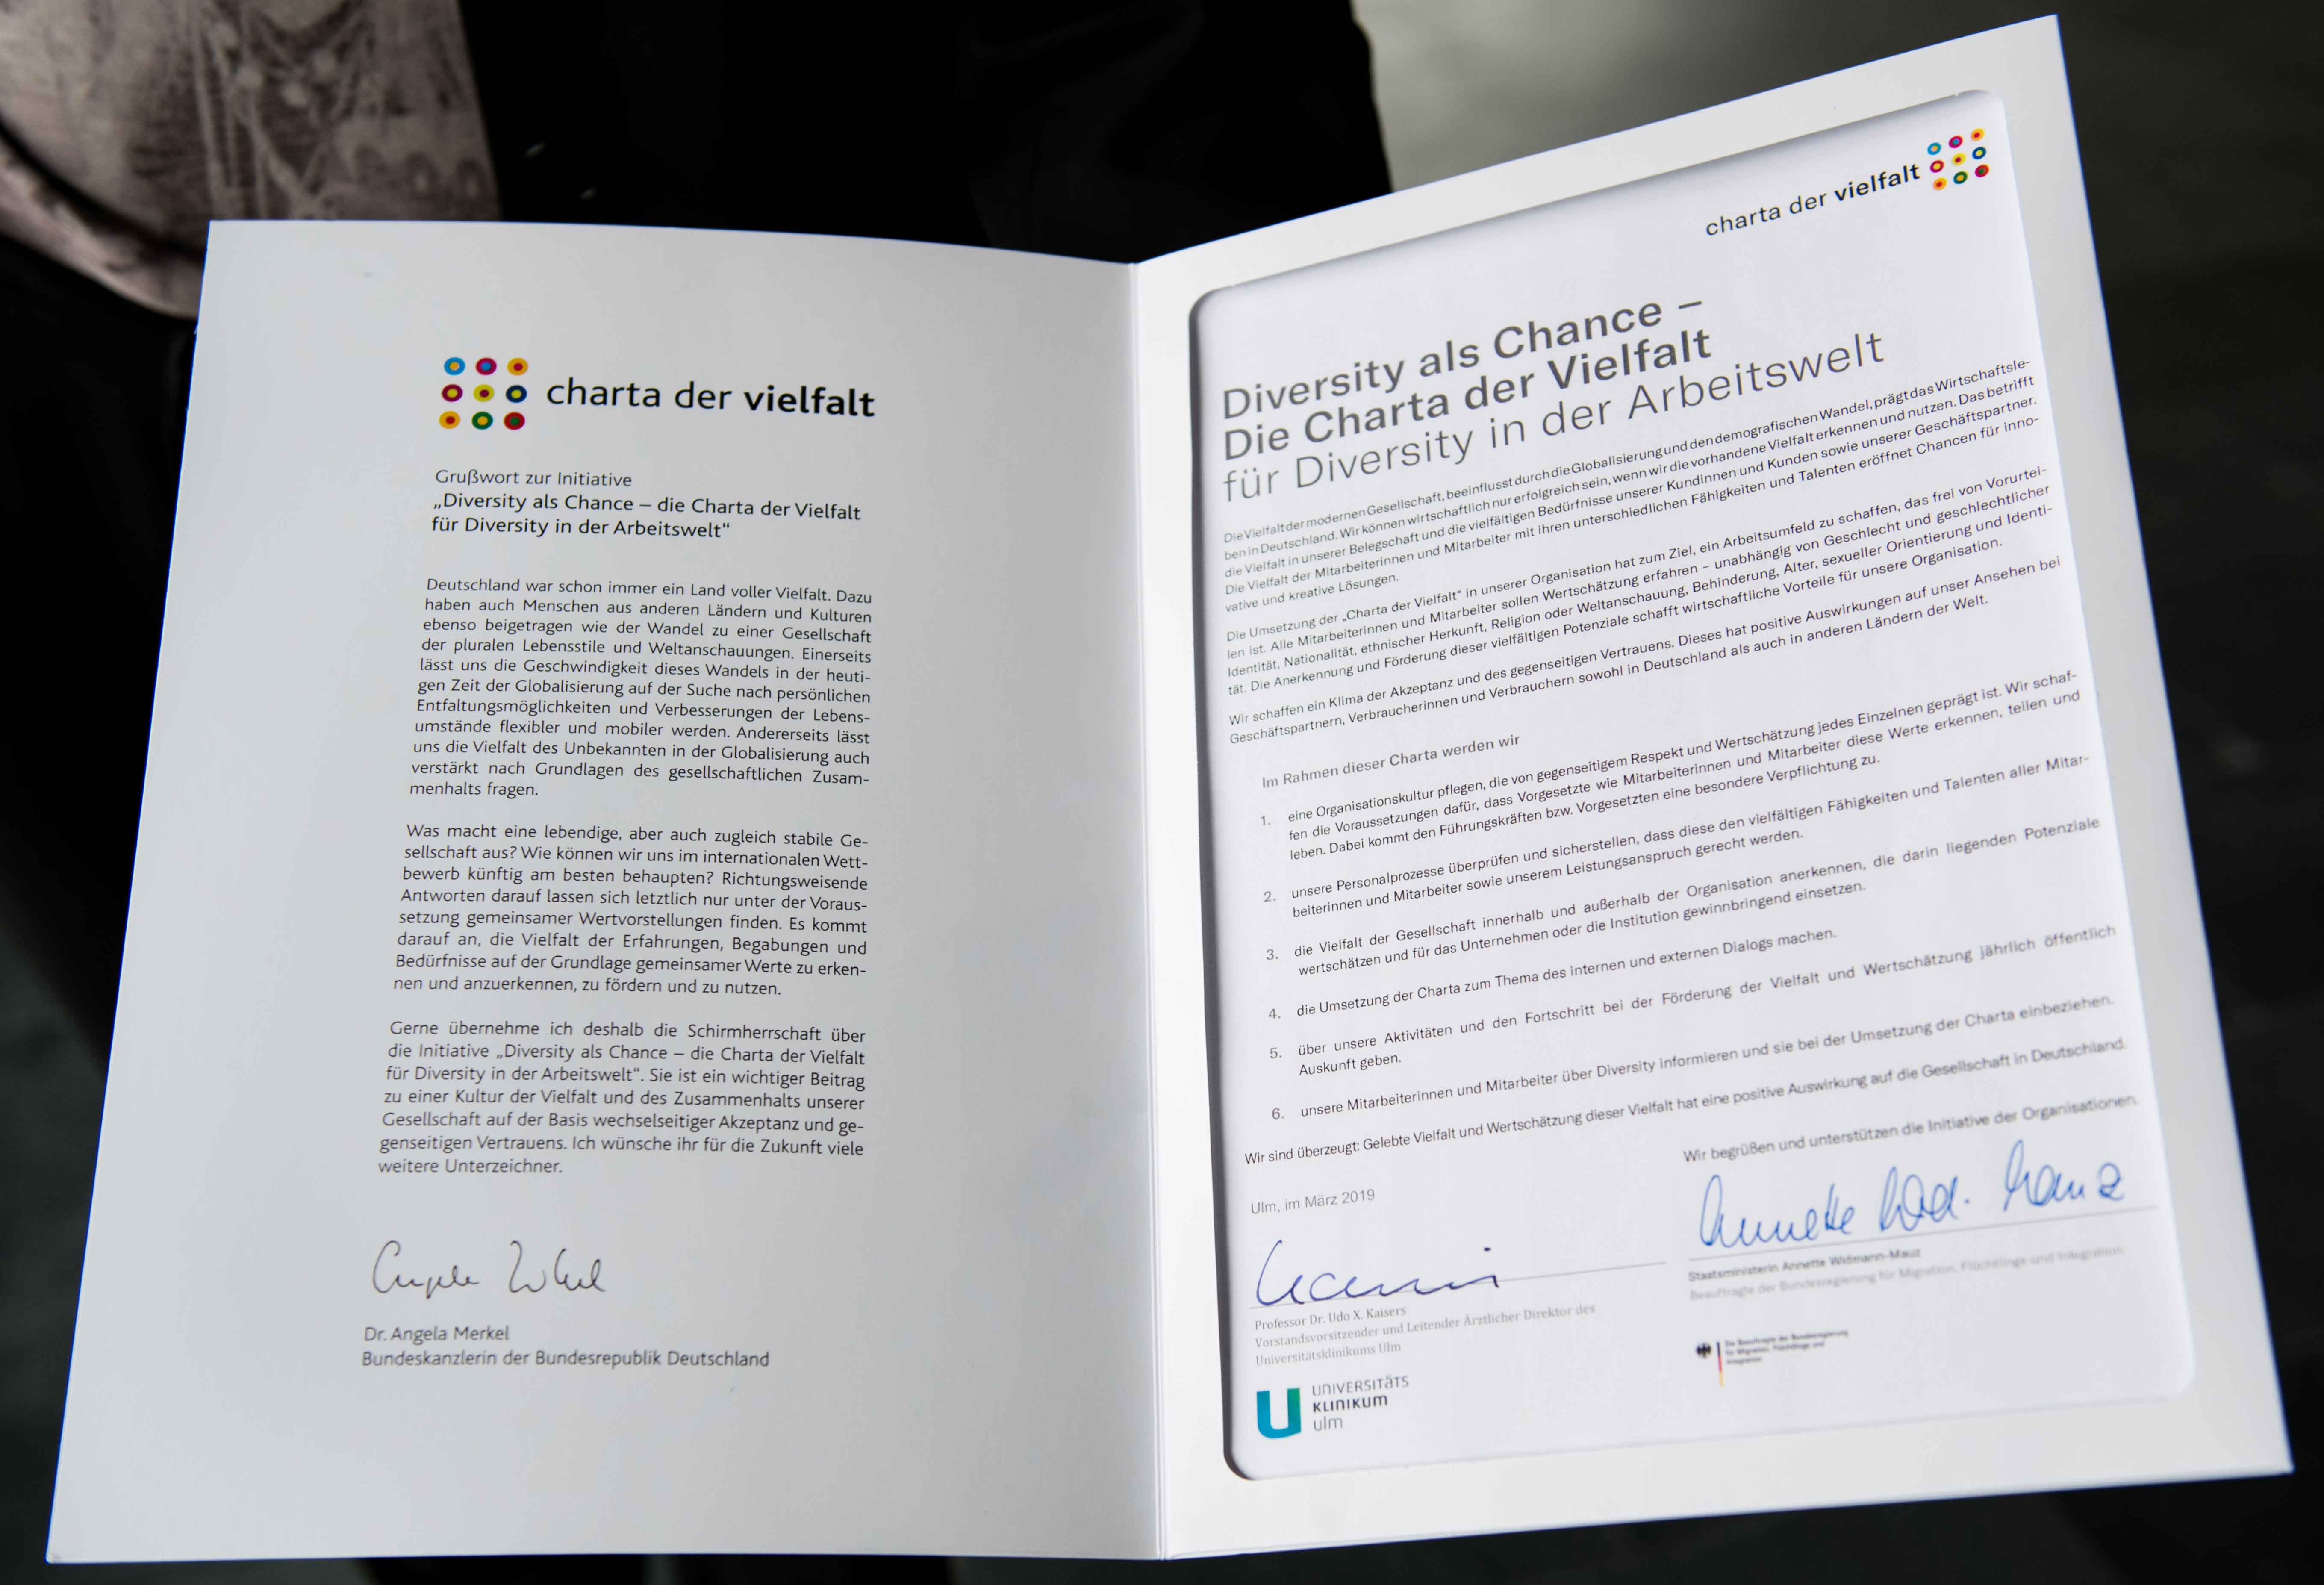 charta der vielfalt
Grußwort zur Initiative
„Diversity als Chance – die Charta der Vielfalt
für Diversity in der Arbeitswelt“
Deutschland war schon immer ein Land voller Vielfalt. Dazu
haben auch Menschen aus anderen Ländern und Kulturen
ebenso beigetragen wie der Wandel zu einer Gesellschaft
der pluralen Lebensstile und Weltanschauungen. Einerseits
lässt uns die Geschwindigkeit dieses Wandels in der heuti-
gen Zeit der Globalisierung auf der Suche nach persönlichen
Entfaltungsmöglichkeiten und Verbesserungen der Lebens-
umstände flexibler und mobiler werden. Andererseits lässt
uns die Vielfalt des Unbekannten in der Globalisierung auch
verstärkt nach Grundlagen des gesellschaftlichen Zusam-
menhalts fragen.
Was macht eine lebendige, aber auch zugleich stabile Ge-
sellschaft aus? Wie können wir uns im internationalen Wett-
bewerb künftig am besten behaupten? Richtungsweisende
Antworten darauf lassen sich letztlich nur unter der Voraus-
setzung gemeinsamer Wertvorstellungen finden. Es kommt
darauf an, die Vielfalt der Erfahrungen, Begabungen und
Bedürfnisse auf der Grundlage gemeinsamer Werte zu erken-
nen und anzuerkennen, zu fördern und zu nutzen.
Gerne übernehme ich deshalb die Schirmherrschaft über
die Initiative „Diversity als Chance – die Charta der Vielfalt
für Diversity in der Arbeitswelt“. Sie ist ein wichtiger Beitrag
zu einer Kultur der Vielfalt und des Zusammenhalts unserer
Gesellschaft auf der Basis wechselseitiger Akzeptanz und ge-
genseitigen Vertrauens. Ich wünsche ihr für die Zukunft viele
weitere Unterzeichner.
Angela Merkel
Dr. Angela Merkel
Bundeskanzlerin der Bundesrepublik Deutschland
charta der vielfalt
Diversity als Chance –
Die Charta der Vielfalt
für Diversity in der Arbeitswelt
Die Vielfalt der modernen Gesellschaft, beeinflusst durch die Globalisierung und den demografischen Wandel, prägt das Wirtschaftsle-
ben in Deutschland. Wir können wirtschaftlich nur erfolgreich sein, wenn wir die vorhandene Vielfalt erkennen und nutzen. Das betrifft
die Vielfalt in unserer Belegschaft und die vielfältigen Bedürfnisse unserer Kundinnen und Kunden sowie unserer Geschäftspartner.
Die Vielfalt der Mitarbeiterinnen und Mitarbeiter mit ihren unterschiedlichen Fähigkeiten und Talenten eröffnet Chancen für inno-
vative und kreative Lösungen.
Die Umsetzung der „Charta der Vielfalt“ in unserer Organisation hat zum Ziel, ein Arbeitsumfeld zu schaffen, das frei von Vorurtei-
len ist. Alle Mitarbeiterinnen und Mitarbeiter sollen Wertschätzung erfahren – unabhängig von Geschlecht und geschlechtlicher
Identität, Nationalität, ethnischer Herkunft, Religion oder Weltanschauung, Behinderung, Alter, sexueller Orientierung und Identi-
tät. Die Anerkennung und Förderung dieser vielfältigen Potenziale schafft wirtschaftliche Vorteile für unsere Organisation.
Wir schaffen ein Klima der Akzeptanz und des gegenseitigen Vertrauens. Dieses hat positive Auswirkungen auf unser Ansehen bei
Geschäftspartnern, Verbraucherinnen und Verbrauchern sowohl in Deutschland als auch in anderen Ländern der Welt.
Im Rahmen dieser Charta werden wir
1. eine Organisationskultur pflegen, die von gegenseitigem Respekt und Wertschätzung jedes Einzelnen geprägt ist. Wir schaf-
fen die Voraussetzungen dafür, dass Vorgesetzte wie Mitarbeiterinnen und Mitarbeiter diese Werte erkennen, teilen und
leben. Dabei kommt den Führungskräften bzw. Vorgesetzten eine besondere Verpflichtung zu.
2. unsere Personalprozesse überprüfen und sicherstellen, dass diese den vielfältigen Fähigkeiten und Talenten aller Mitar-
beiterinnen und Mitarbeiter sowie unserem Leistungsanspruch gerecht werden.
3. die Vielfalt der Gesellschaft innerhalb und außerhalb der Organisation anerkennen, die darin liegenden Potenziale
wertschätzen und für das Unternehmen oder die Institution gewinnbringend einsetzen.
4. die Umsetzung der Charta zum Thema des internen und externen Dialogs machen.
5. über unsere Aktivitäten und den Fortschritt bei der Förderung der Vielfalt und Wertschätzung jährlich öffentlich
Auskunft geben.
6. unsere Mitarbeiterinnen und Mitarbeiter über Diversity informieren und sie bei der Umsetzung der Charta einbeziehen.
Wir sind überzeugt: Gelebte Vielfalt und Wertschätzung dieser Vielfalt hat eine positive Auswirkung auf die Gesellschaft in Deutschland.
Wir begrüßen und unterstützen die Initiative der Organisationen.
Ulm, im März 2019
Professor Dr. Udo X. Kaisers
Vorstandsvorsitzender und Leitender Ärztlicher Direktor des
Universitätsklinikums Ulm
UNIVERSITÄTS
KLINIKUM
ulm
Annette Wid. Mauz
Staatsministerin Annette Widmann-Mauz
Beauftragte der Bundesregierung für Migration, Flüchtlinge und Integration
Die Beauftragte der Bundesregierung
für Migration, Flüchtlinge und
Integration